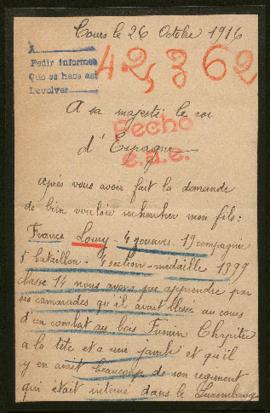 Tours le 26 Octobre 1916
A
Pedir informes
Que se haga asi
Devolver
42,362
A sa majesté le roi
d'Espagne
Hecho
e.a.e.
Après vous avoir fait la demande
de bien vouloir rechercher mon fils:
France Loury 4 zouaves. 19 compagnie
5 bataillon - 4 section - medaille 1899
classe 14 nous avons pu apprendre par
ses camarades qu'il avait blessé au cours
d'un combat au bois Fumin Chapitre
a la tête et a une jambe et qu'il
y en avait beaucoup de son regiment
qui était interné dans le Luxembourg